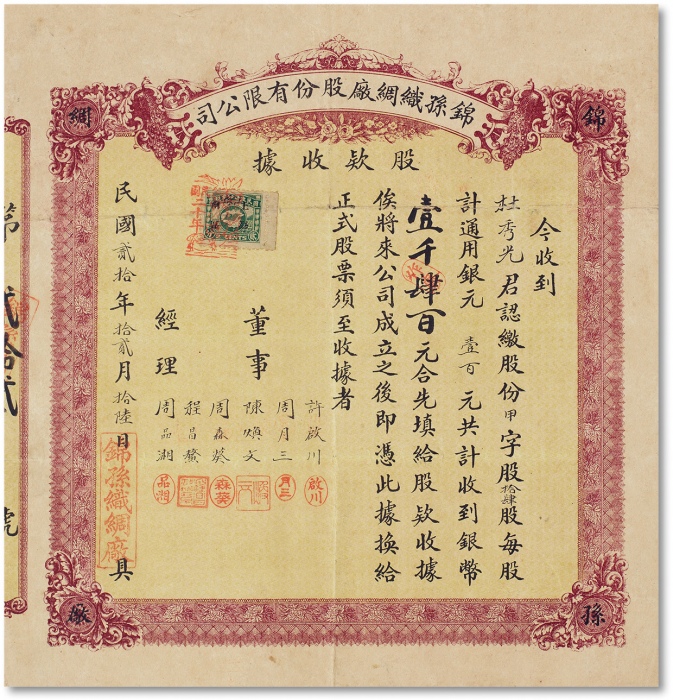 錦孫織綢廠股份有限公司
錦
綢
股欵收據
今收到
杜秀光君認繳股份甲字股拾肆股每股
計通用銀元壹百元共計收到銀幣
壹千肆百元合先填給股欵收據
俟將來公司成立之後即憑此據換給
正式股票須至收據者
董事
許啟川
周月三
陳煥文
周森葵
經理
程昌
周品湖
啟川
月三
森葵
品湖
民國貳拾年拾貳月拾陸日
錦孫織綢廠
具
孫
廠
第
貳拾貳
號